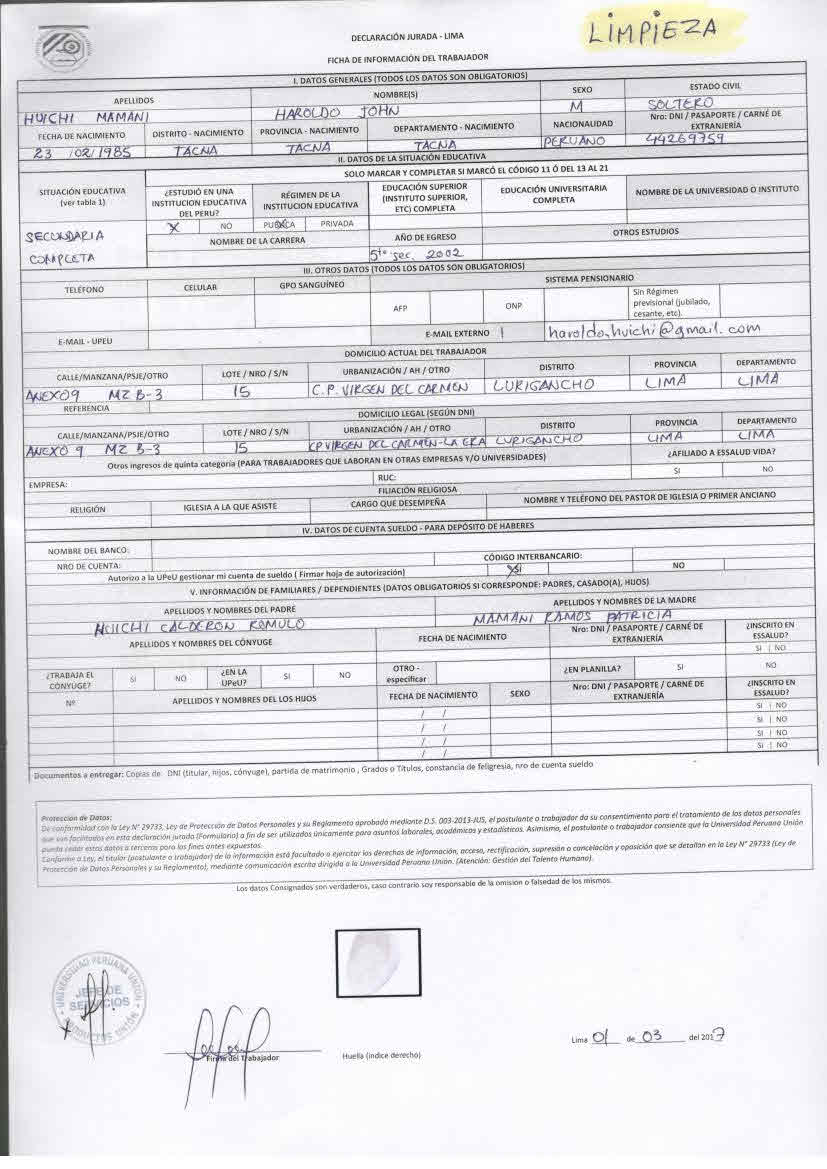 LIMPIEZA
DECLARACIÓN JURADA - LIMA
FICHA DE INFORMACIÓN DEL TRABAJADOR
I. DATOS GENERALES (TODOS LOS DATOS SON OBLIGATORIOS)
APELLIDOS NOMBRE(S) SEXO ESTADO CIVIL
HUICHI MAMANI HAROLDO JOHN M SOLTERO
FECHA DE NACIMIENTO DISTRITO - NACIMIENTO PROVINCIA - NACIMIENTO DEPARTAMENTO - NACIMIENTO NACIONALIDAD Nro: DNI / PASAPORTE / CARNÉ DE EXTRANJERÍA
23 /02/1985 TACNA TACNA TACNA PERUANO 44269759
II. DATOS DE LA SITUACIÓN EDUCATIVA
SOLO MARCAR Y COMPLETAR SI MARCÓ EL CÓDIGO 11 Ó DEL 13 AL 21
SITUACIÓN EDUCATIVA (ver tabla 1) ¿ESTUDIÓ EN UNA INSTITUCION EDUCATIVA DEL PERU? RÉGIMEN DE LA INSTITUCION EDUCATIVA EDUCACIÓN SUPERIOR (INSTITUTO SUPERIOR, ETC) COMPLETA EDUCACIÓN UNIVERSITARIA COMPLETA NOMBRE DE LA UNIVERSIDAD O INSTITUTO
X NO PUBLICA PRIVADA
SECUNDARIA COMPLETA
NOMBRE DE LA CARRERA AÑO DE EGRESO OTROS ESTUDIOS
5to sec. 2002
III. OTROS DATOS (TODOS LOS DATOS SON OBLIGATORIOS)
TELÉFONO CELULAR GPO SANGUÍNEO SISTEMA PENSIONARIO
AFP ONP Sin Régimen previsional (jubilado, cesante, etc).
E-MAIL - UPEU E-MAIL EXTERNO haroldo.huichi@gmail.com
DOMICILIO ACTUAL DEL TRABAJADOR
CALLE/MANZANA/PSJE/OTRO LOTE / NRO / S/N URBANIZACIÓN / AH / OTRO DISTRITO PROVINCIA DEPARTAMENTO
ANEXO9 MZ B-3 15 C.P. VIRGEN DEL CARMEN LURIGANCHO LIMA LIMA
REFERENCIA
DOMICILIO LEGAL (SEGÚN DNI)
CALLE/MANZANA/PSJE/OTRO LOTE / NRO / S/N URBANIZACIÓN / AH / OTRO DISTRITO PROVINCIA DEPARTAMENTO
ANEXO 9 MZ B-3 15 CP VIRGEN DEL CARMEN-LA ERA LURIGANCHO LIMA LIMA
Otros ingresos de quinta categoría (PARA TRABAJADORES QUE LABORAN EN OTRAS EMPRESAS Y/O UNIVERSIDADES) ¿AFILIADO A ESSALUD VIDA?
EMPRESA: RUC: SI NO
FILIACIÓN RELIGIOSA
RELIGIÓN IGLESIA A LA QUE ASISTE CARGO QUE DESEMPEÑA NOMBRE Y TELÉFONO DEL PASTOR DE IGLESIA O PRIMER ANCIANO
IV. DATOS DE CUENTA SUELDO - PARA DEPÓSITO DE HABERES
NOMBRE DEL BANCO:
NRO DE CUENTA: CÓDIGO INTERBANCARIO:
Autorizo a la UPeU gestionar mi cuenta de sueldo ( Firmar hoja de autorización) SI NO
V. INFORMACIÓN DE FAMILIARES / DEPENDIENTES (DATOS OBLIGATORIOS SI CORRESPONDE: PADRES, CASADO(A), HIJOS)
APELLIDOS Y NOMBRES DEL PADRE APELLIDOS Y NOMBRES DE LA MADRE
HUICHI CALDERON ROMULO MAMANI RAMOS PATRICIA
APELLIDOS Y NOMBRES DEL CÓNYUGE FECHA DE NACIMIENTO Nro: DNI / PASAPORTE / CARNÉ DE EXTRANJERÍA ¿INSCRITO EN ESSALUD?
SI NO
¿TRABAJA EL CÓNYUGE? SI NO ¿EN LA UPeU? SI NO OTRO - especificar ¿EN PLANILLA? SI NO
Nº APELLIDOS Y NOMBRES DEL LOS HIJOS FECHA DE NACIMIENTO SEXO Nro: DNI / PASAPORTE / CARNÉ DE EXTRANJERÍA ¿INSCRITO EN ESSALUD?
/ / SI NO
/ / SI NO
/ / SI NO
/ / SI NO
Documentos a entregar: Copias de DNI (titular, hijos, cónyuge), partida de matrimonio , Grados o Títulos, constancia de feligresia, nro de cuenta sueldo
Protección de Datos:
De conformidad con la Ley N° 29733, Ley de Protección de Datos Personales y su Reglamento aprobado mediante D.S. 003-2013-JUS, el postulante o trabajador da su consentimiento para el tratamiento de los datos personales
que son facilitados en esta declaración jurada (Formulario) a fin de ser utilizados únicamente para asuntos laborales, académicos y estadísticos. Asimismo, el postulante o trabajador consiente que la Universidad Peruana Unión
pueda ceder estos datos a terceros para los fines antes expuestos.
Conforme a Ley, el titular (postulante o trabajador) de la información está facultado a ejercitar los derechos de información, acceso, rectificación, supresión o cancelación y oposición que se detallan en la Ley N° 29733 (Ley de
Protección de Datos Personales y su Reglamento), mediante comunicación escrita dirigida a la Universidad Peruana Unión. (Atención: Gestión del Talento Humano).
Los datos Consignados son verdaderos, caso contrario soy responsable de la omision o falsedad de los mismos.
UNIVERSIDAD PERUANA UNION
JEFE DE
SERVICIOS
PRODUCTOS UNIÓN
Firma del Trabajador Huella (indice derecho) Lima 01 de 03 del 2017